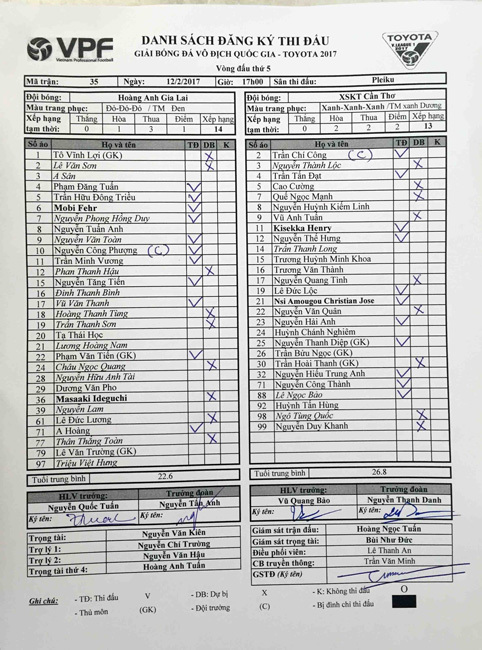 VPF
Vietnam Professional Football
DANH SÁCH ĐĂNG KÝ THI ĐẤU
GIẢI BÓNG ĐÁ VÔ ĐỊCH QUỐC GIA - TOYOTA 2017
Vòng đấu thứ 5
TOYOTA
V.LEAGUE 1
2017
Mã trận: 35 Ngày: 12/2/2017 Giờ: 17h00 Sân thi đấu: Pleiku
Đội bóng: Hoàng Anh Gia Lai
Màu trang phục: Đỏ-Đỏ-Đỏ / TM Đen
Xếp hạng tạm thời: Thắng Hòa Thua Điểm Xếp hạng
0 1 3 1 14
Số áo Họ và tên TĐ DB K
1 Tô Vĩnh Lợi (GK) X
2 Lê Văn Sơn X
3 A Sân
4 Phạm Đăng Tuấn V
5 Trần Hữu Đông Triều V
6 Mobi Fehr V
7 Nguyễn Phong Hồng Duy V
8 Nguyễn Tuấn Anh
9 Nguyễn Văn Toàn V
10 Nguyễn Công Phượng (C) V
11 Trần Minh Vương V
12 Phan Thanh Hậu X
15 Nguyễn Tăng Tiến V
16 Đinh Thanh Bình
17 Vũ Văn Thanh V
18 Hoàng Thanh Tùng X
19 Trần Thanh Sơn X
20 Tạ Thái Học
21 Lương Hoàng Nam
22 Phạm Văn Tiến (GK) V
24 Châu Ngọc Quang X
28 Nguyễn Hữu Anh Tài
29 Dương Văn Pho
36 Masaaki Ideguchi X
39 Nguyễn Lam
61 Lê Đức Lương X
71 A Hoàng V
77 Thân Thằng Toàn X
79 Lê Văn Trường (GK)
97 Triệu Việt Hưng
Tuổi trung bình 22.6
HLV trưởng: Trưởng đoàn
Nguyễn Quốc Tuấn Nguyễn Tấn Anh
Ký tên: Ký tên:
Trọng tài: Nguyễn Văn Kiên
Trợ lý 1: Nguyễn Chí Trường
Trợ lý 2: Nguyễn Văn Hậu
Trọng tài thứ 4: Hoàng Anh Tuấn
Đội bóng: XSKT Cần Thơ
Màu trang phục: Xanh-Xanh-Xanh /TM xanh Dương
Xếp hạng tạm thời: Thắng Hòa Thua Điểm Xếp hạng
0 2 2 2 13
Số áo Họ và tên TĐ DB K
2 Trần Chí Công (C) V
3 Nguyễn Thành Lộc X
4 Trần Tấn Đạt V
5 Cao Cường X
7 Quế Ngọc Mạnh X
8 Nguyễn Huỳnh Kiếm Linh
9 Vũ Anh Tuấn X
11 Kisekka Henry V
12 Nguyễn Thế Hưng V
14 Trần Thanh Long
15 Trương Huỳnh Minh Khoa
16 Trương Văn Thành
17 Nguyễn Quang Tình X
19 Lê Đức Lộc V
21 Nsi Amougou Christian Jose V
22 Nguyễn Văn Quân X
23 Nguyễn Hải Anh V
24 Huỳnh Chánh Nghiêm
25 Nguyễn Thanh Diệp (GK) V
26 Trần Bửu Ngọc (GK)
30 Trần Hoài Thanh (GK) X
32 Nguyễn Hiếu Trung Anh V
71 Nguyễn Công Thành V
88 Lê Ngọc Bảo V
92 Huỳnh Tấn Hùng
98 Ngô Tùng Quốc X
99 Nguyễn Duy Khanh X
Tuổi trung bình 26.8
HLV trưởng: Trưởng đoàn
Vũ Quang Bảo Nguyễn Thanh Danh
Ký tên: Ký tên:
Giám sát trận đấu: Hoàng Ngọc Tuấn
Giám sát trọng tài: Bùi Như Đức
Điều phối viên: Lê Thanh An
CB truyền thông: Trần Văn Minh
GSTĐ (Ký tên)
Ghi chú: - TĐ: Thi đấu V - DB: Dự bị X - K: Không thi đấu O
- Thủ môn (GK) - Đội trưởng (C) - Bị đình chỉ thi đấu